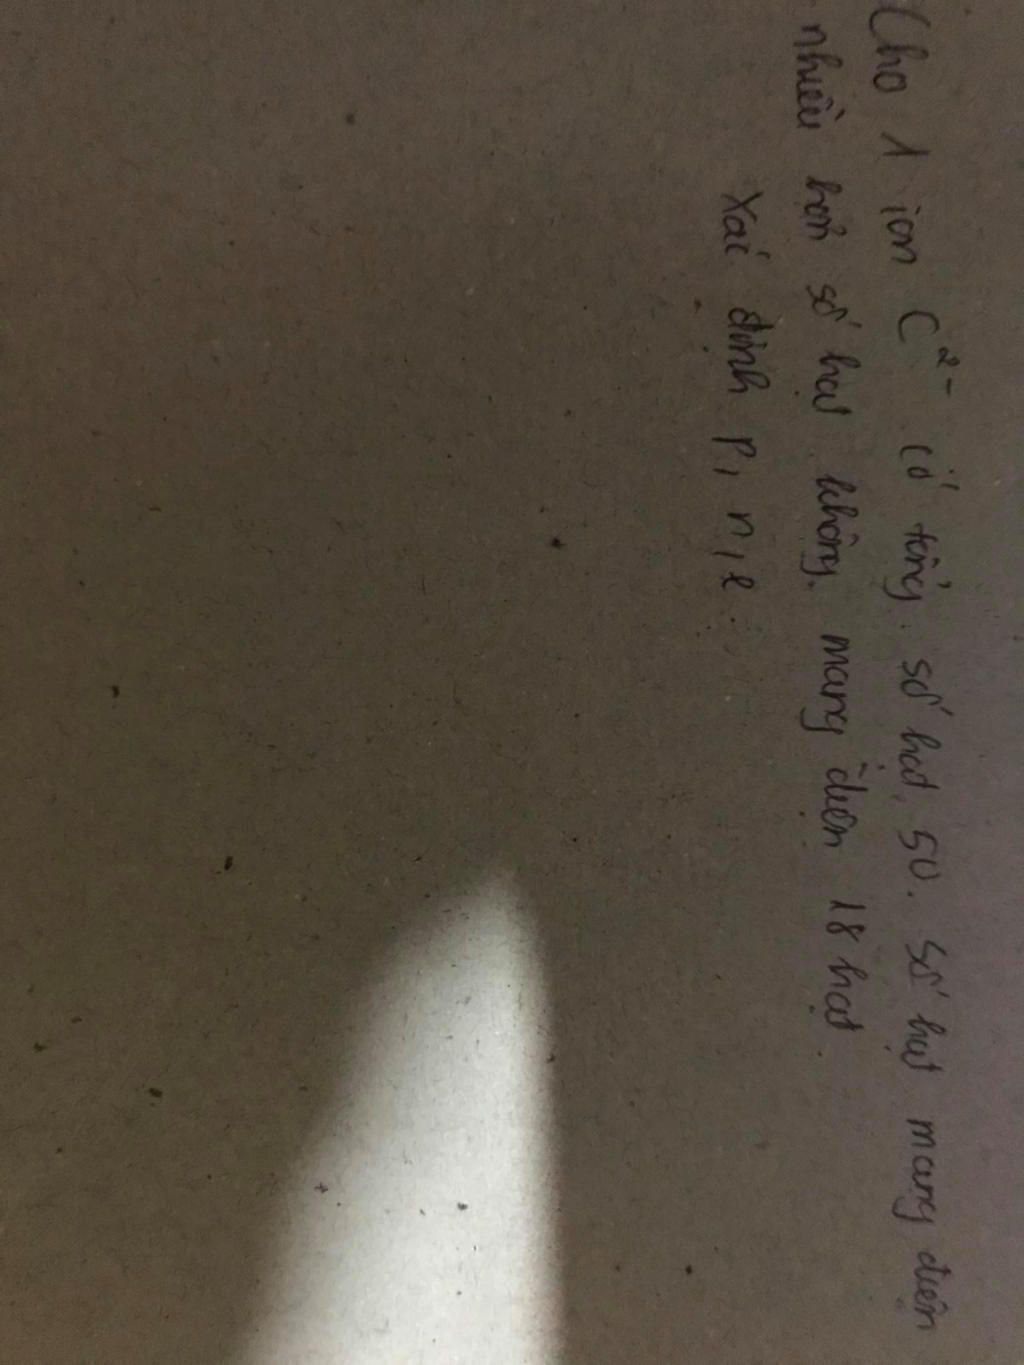 Cho 1 ion C²⁻ có tổng số hạt 50. Số hạt mang điện
nhiều hơn số hạt không mang điện 18 hạt.
Xác định p, n, e.